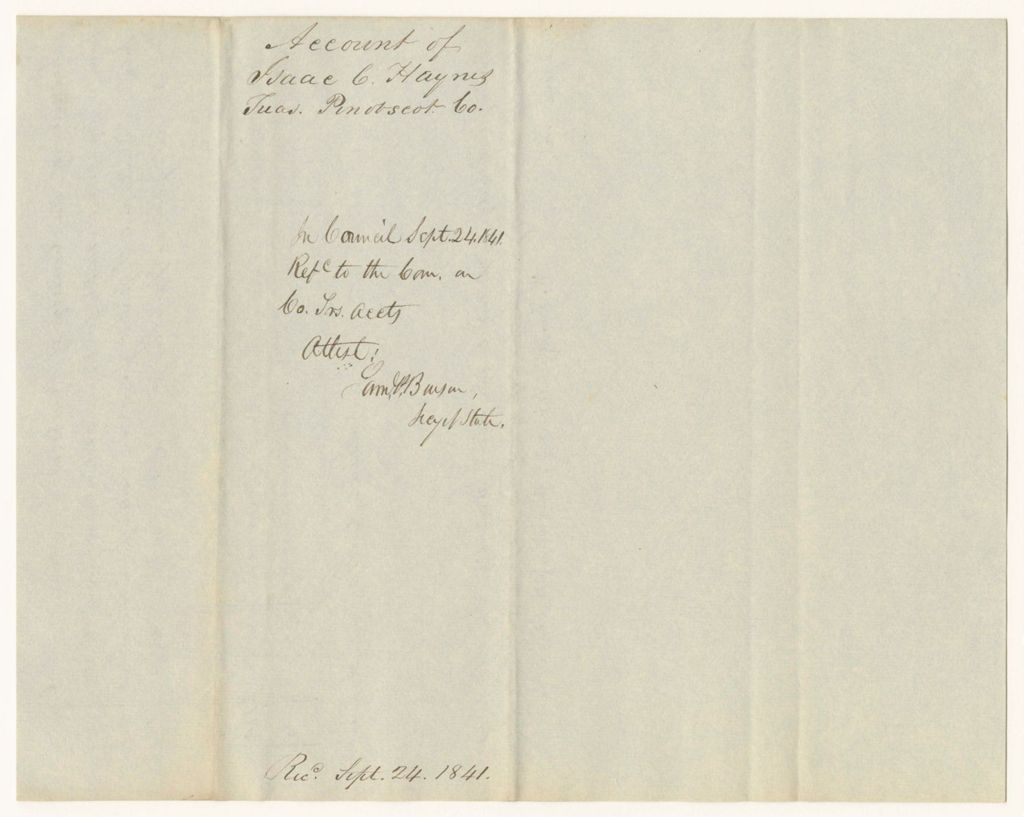 Account of
Isaac C. Haynes
Treas. Penobscot Co.
In Council Sept. 24. 1841.
Refd to the Com. on
Co. Trs. accts
Attest:
Saml. P. Benson,
Secy of State.
Recd. Sept. 24. 1841.